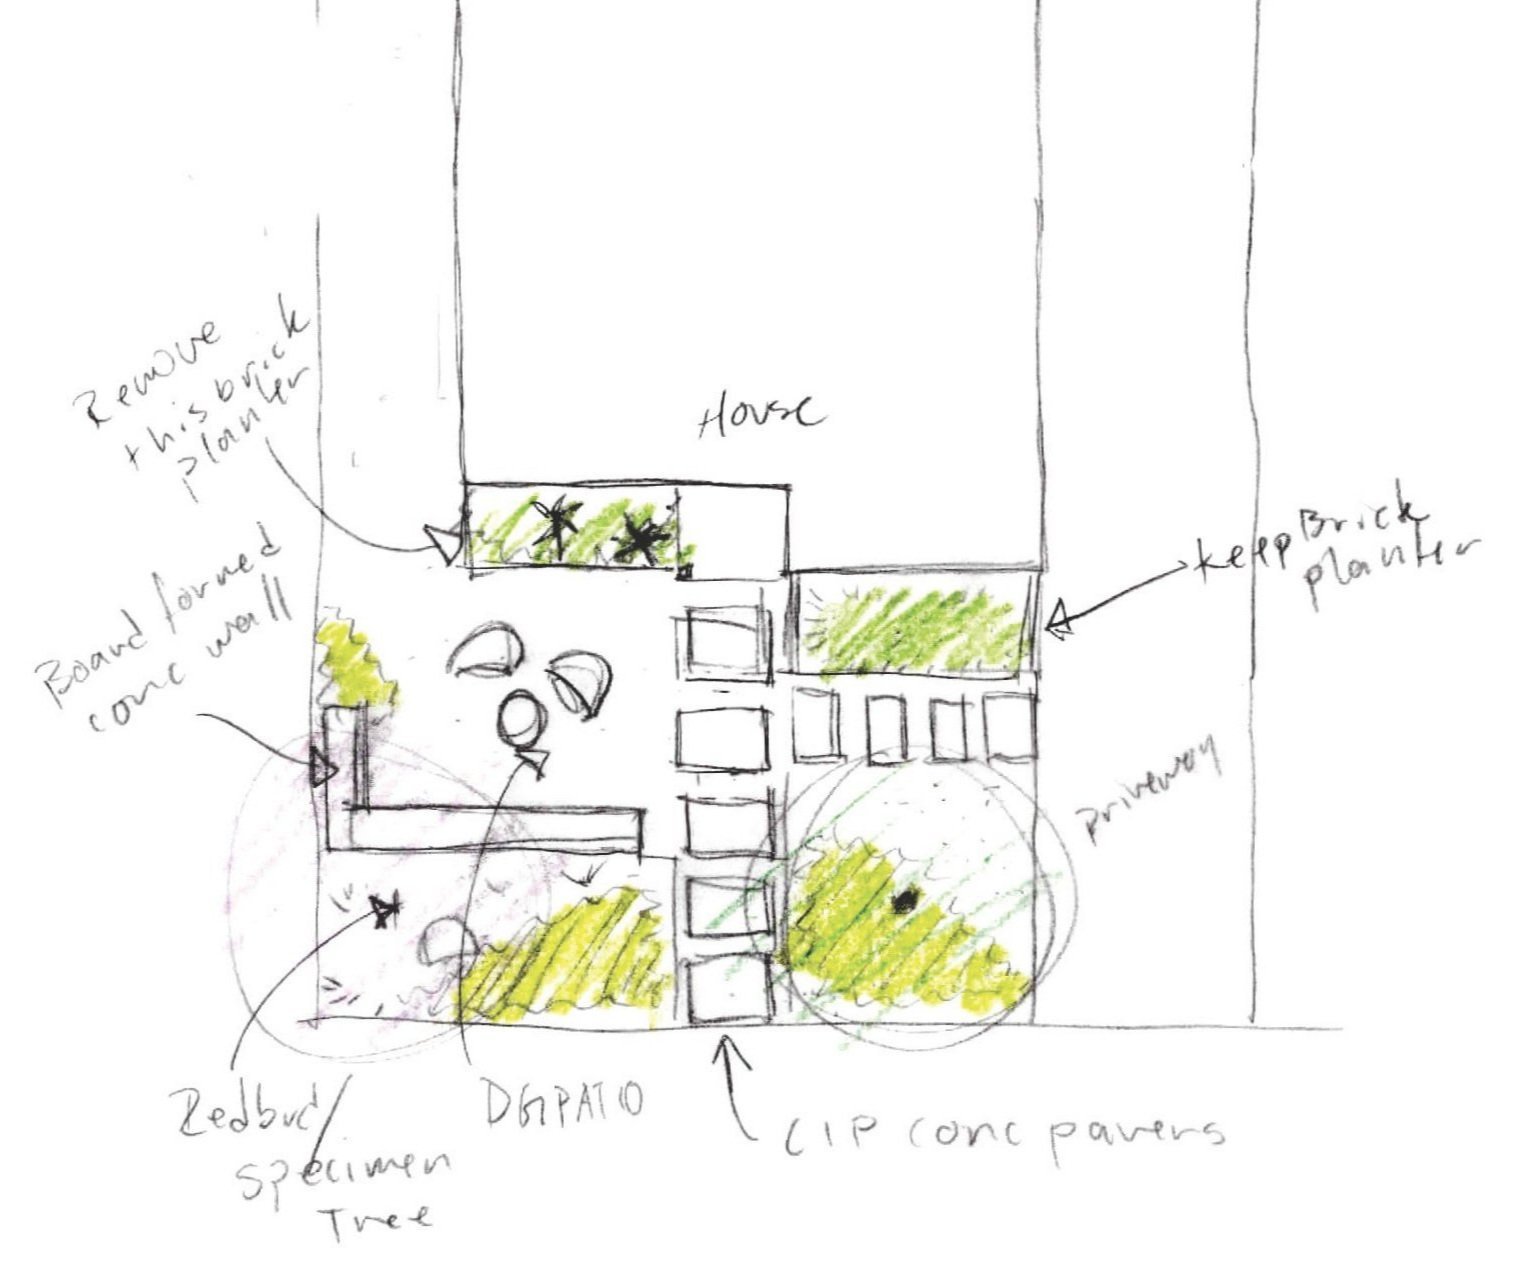 House
Remove
this brick
planter
Board formed
conc wall
keep Brick
planter
Driveway
Redbud/
specimen
Tree
DG PATIO
CIP conc pavers